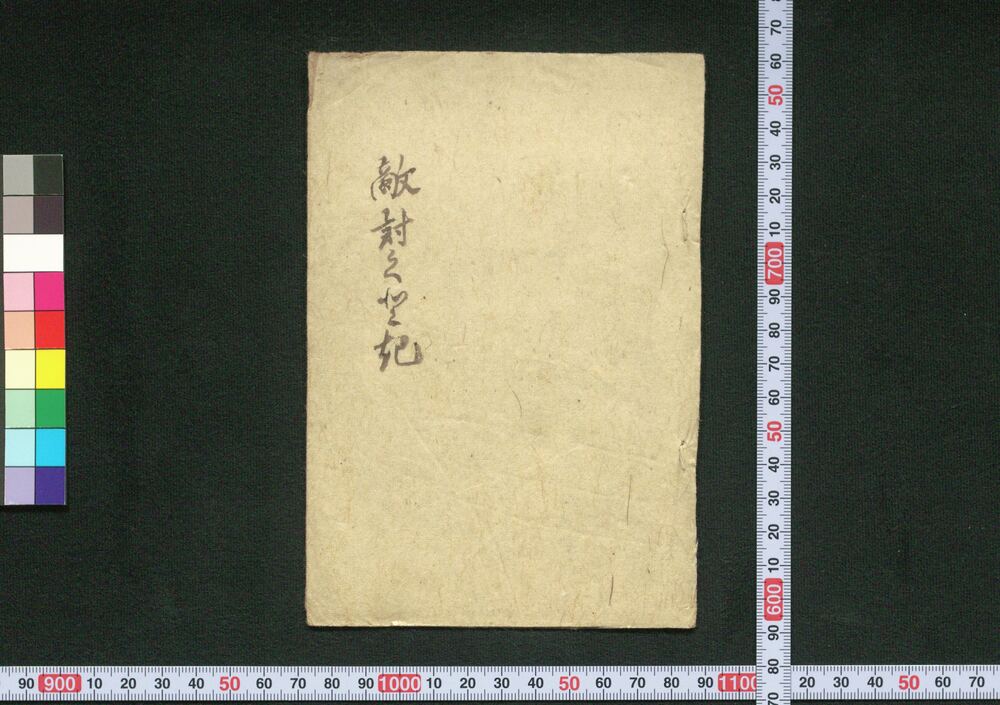 敵討之 記
70 60 50 40 30 20 10 700 90 80 70 60 50 40 30 20 10 600 90 80 70
90 900 10 20 30 40 50 60 70 80 90 1000 10 20 30 40 50 60 70 80 90 1100 20 30 40 50 60 70